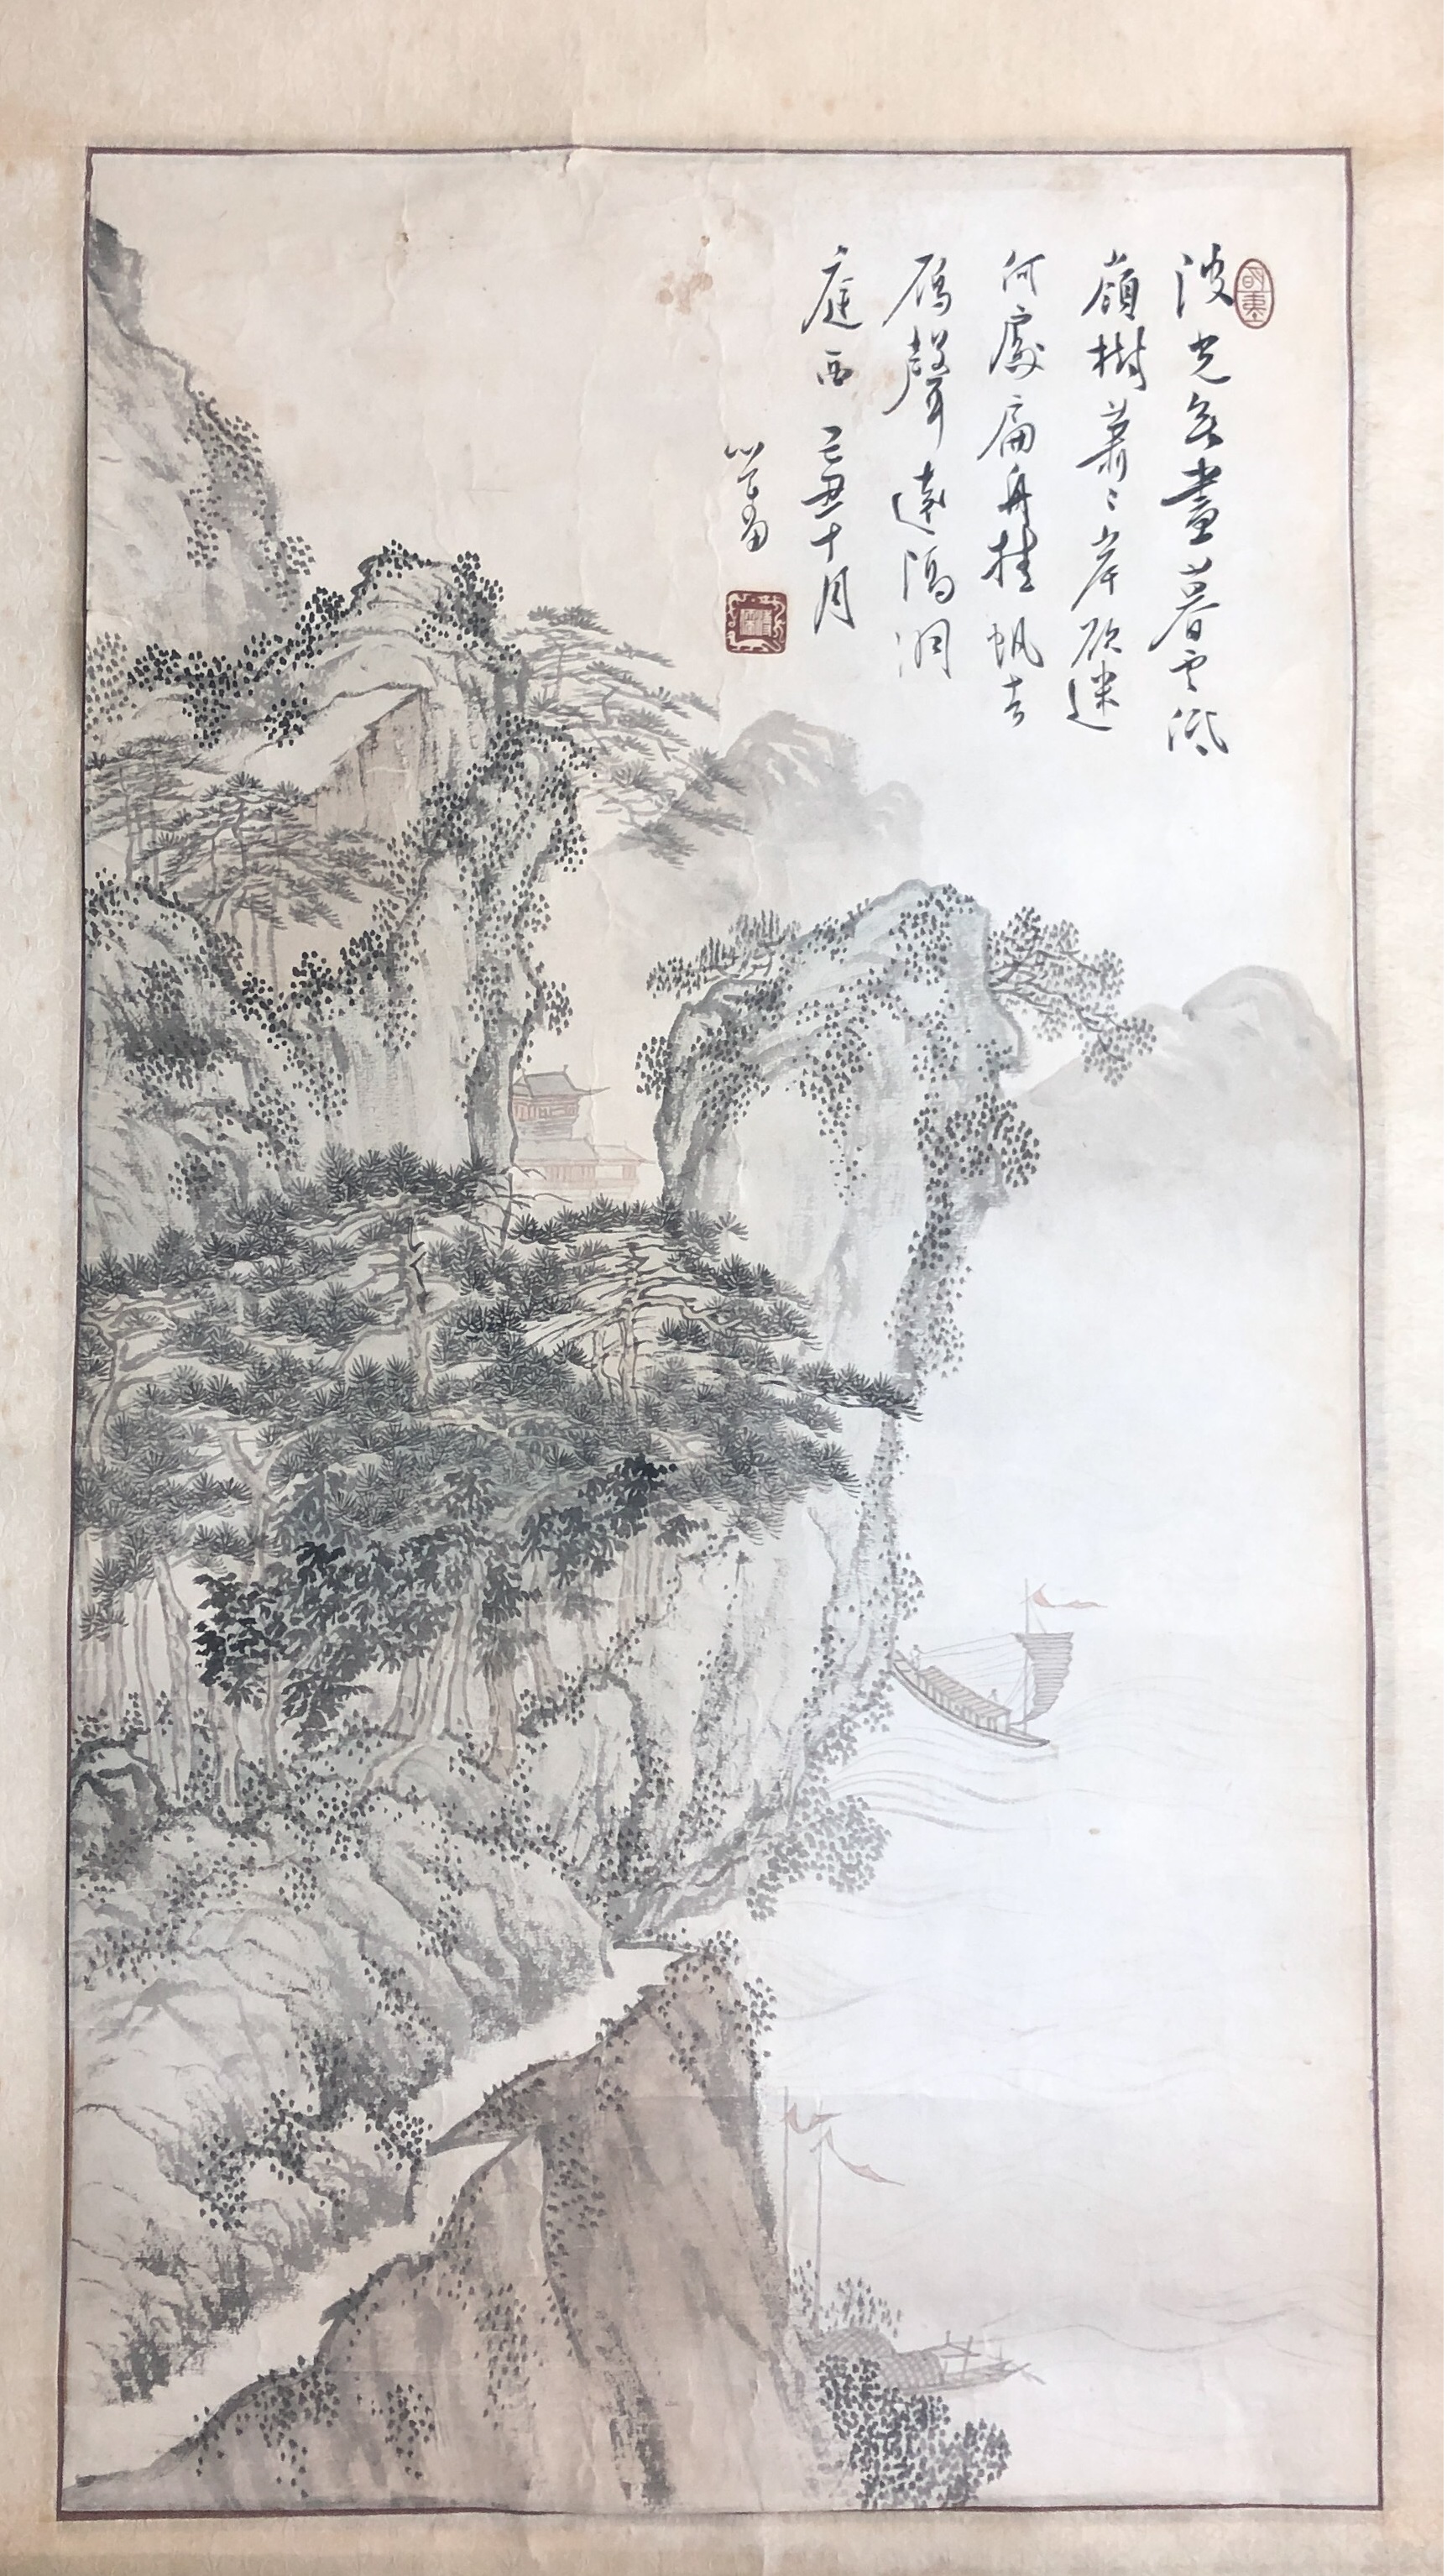 波光無盡暮雲低
嶺樹蕭〻岸欲迷
何處扁舟挂帆去
雁聲遠隔洞
庭西 己丑十月
心畬